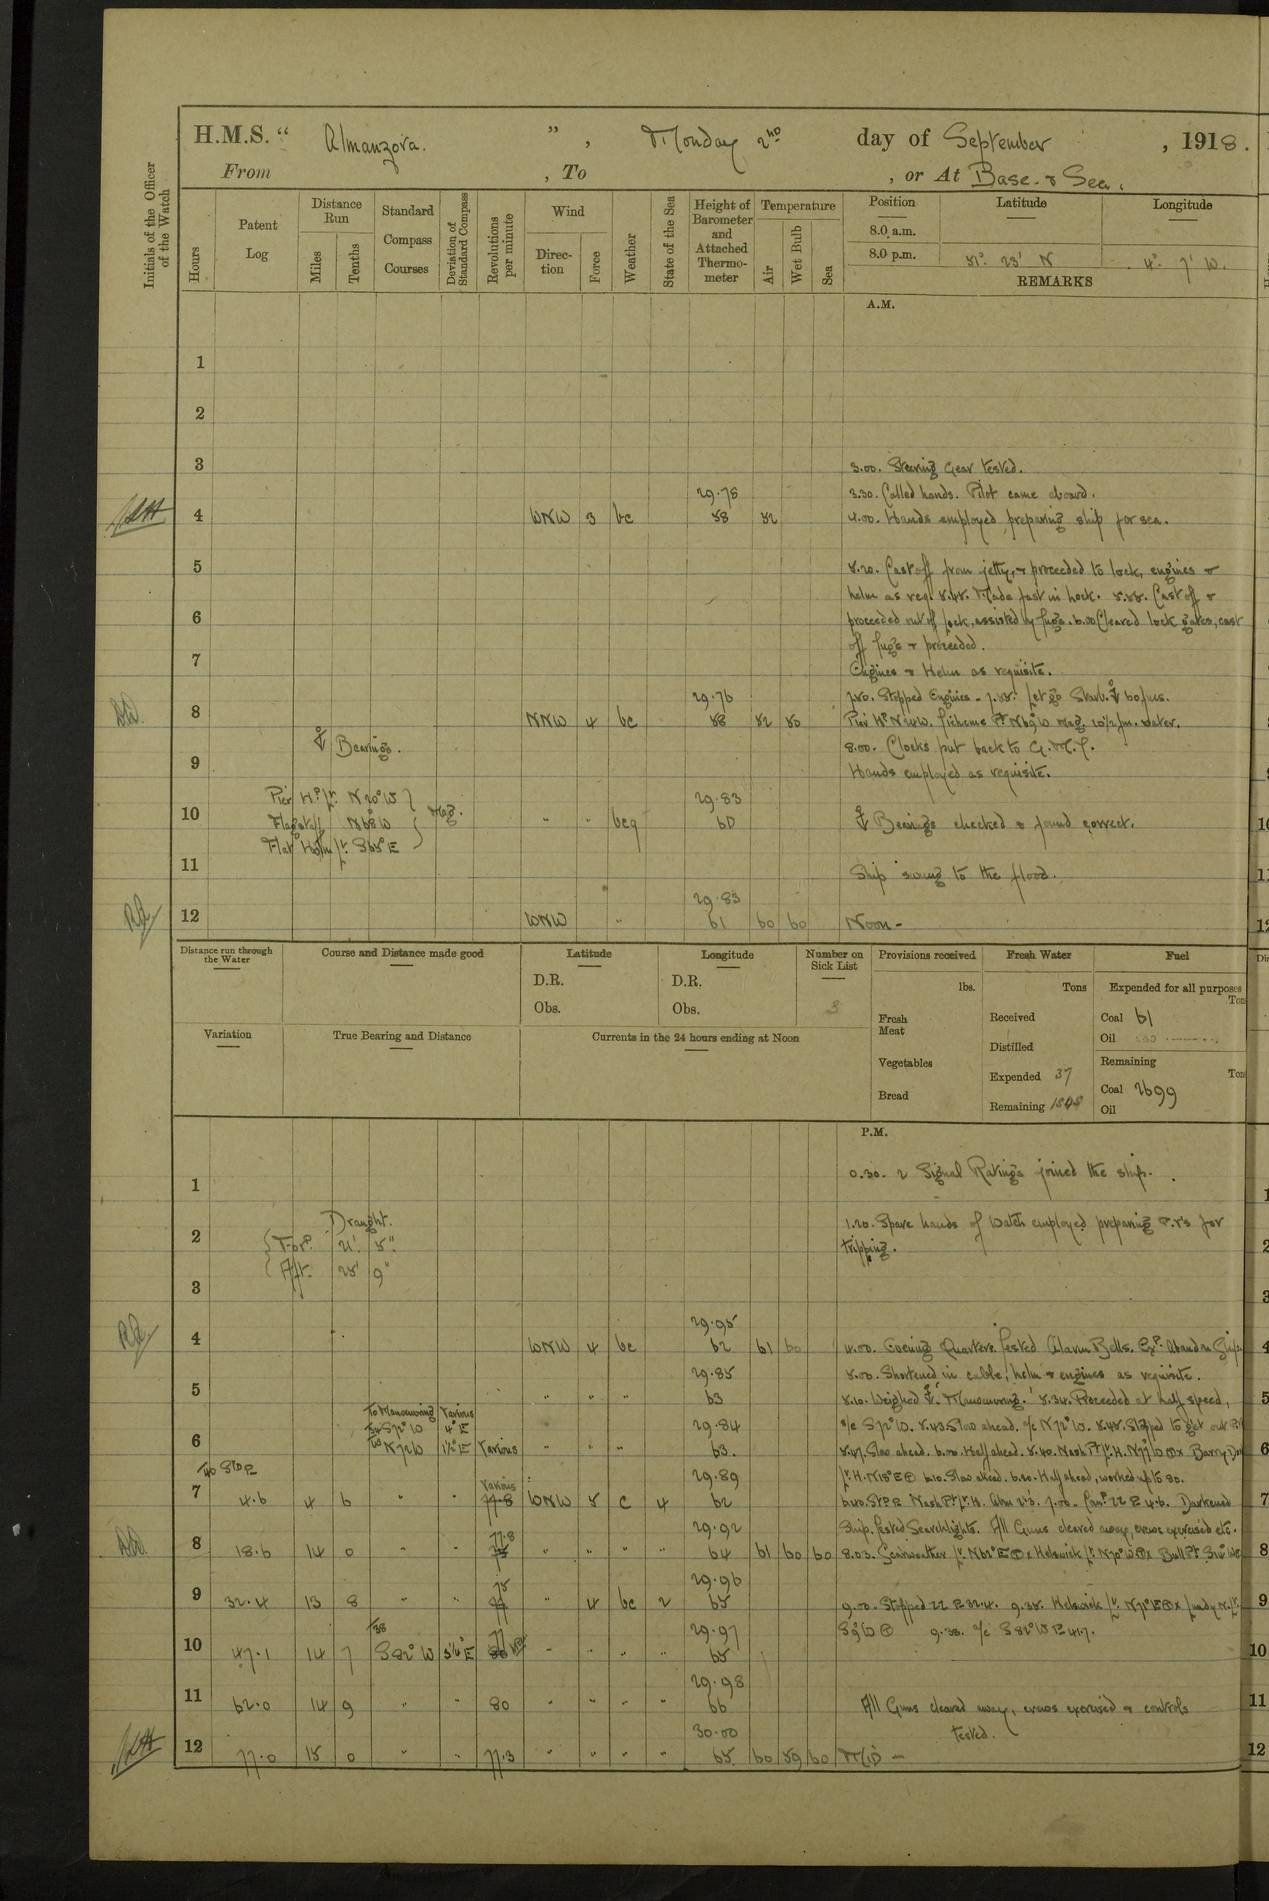 H.M.S. "Almanzora.", Monday 2nd day of September, 1918.
From , To , or At Base & Sea.
Initials of the Officer of the Watch
Hours
Patent Log
Distance Run
Miles
Tenths
Standard Compass Courses
Deviation of Standard Compass
Revolutions per minute
Wind
Direction
Force
Weather
State of the Sea
Height of Barometer and Attached Thermometer
Temperature
Air
Wet Bulb
Sea
Position Latitude Longitude
8.0 a.m.
8.0 p.m. 51° 23' N 4° 7' W.
REMARKS
A.M.
1
2
3 3.00. Steering Gear tested.
29.78 3.30. Called hands. Pilot came aboard.
4 WNW 3 bc 58 52 4.00. Hands employed preparing ship for sea.
5 5.20. Cast off from jetty, & proceeded to lock, engines &
helm as req. 5.45. Made fast in lock. 5.55. Cast off &
6 proceeded out of lock, assisted by tugs. 6.00 Cleared lock gates, cast
off tugs & proceeded.
7 Engines & Helm as requisite.
29.76 7.50. Stopped Engines - 7.55. Let go Starb. ⚓ 60 fms.
8 NNW 4 bc 58 52 50 water.
⚓ Bearings. 8.00. Clocks put back to G.M.T.
9 Hands employed as requisite.
Pier Hd Lt. N 20° W 29.83
10 Flagstaff N 68° W Mag. " " bcq 60 ⚓ Bearings checked & found correct.
Flat Holm Lt. S 65° E
11 Ship swung to the flood.
29.83
12 WNW " 61 60 60 Noon -
Distance run through the Water
Course and Distance made good
Latitude
D.R.
Obs.
Longitude
D.R.
Obs.
Number on Sick List
3
Provisions received
lbs.
Fresh Meat
Vegetables
Bread
Fresh Water
Tons
Received
Distilled
Expended 37
Remaining 1848
Fuel
Expended for all purposes
Tons
Coal 61
Oil
Remaining
Tons
Coal 2699
Oil
Variation
True Bearing and Distance
Currents in the 24 hours ending at Noon
P.M.
1 0.30. 2 Signal Ratings joined the ship.
Draught. 1.20. Spare hands of Watch employed preparing P.V's for
2 Ford. 21' 5" tripping.
Aft. 25' 9"
3
29.95
4 WNW 4 bc 62 61 60 4.00. Evening Quarters. Tested Alarm Bells. Exd. Abandon Ship.
29.85 5.00. Shortened in cable, helm & engines as requisite.
5 " " " 63 5.10. Weighed ⚓. Manoeuvring. 5.34. Proceeded at half speed,
To Manoeuvring Various
S 72° W 4° E 29.84 a/c S 72° W. 5.43. Slow ahead. a/c N 72° W. 5.45. Stopped to get out
6 N 72 W 1½° E Various " " " 63. 5.47. Slow ahead. 6.00. Half ahead.
29.89 6.10. Slow ahead. 6.20. Half ahead, worked up to 80.
7 4.6 4 6 " " Various 77.8 WNW 5 C 4 62 7.00. 4.6. Darkened
29.92 Ship. Tested Searchlights. All Guns cleared away, crews exercised etc.
8 18.6 14 0 " " 77.8 " " " " 64 61 60 60 8.03.
29.96
9 32.4 13 8 " " 75 " 4 bc 2 65 9.00. Stopped 22 P 32.4. 9.35. Helwick
29.97 9.38. a/c S 82° W P 41.7.
10 47.1 14 7 S 82° W 3½° E 77 " " " " 65
29.98
11 62.0 14 9 " " 80 " " " " 66 All Guns cleared away, crews exercised & controls
30.00 tested.
12 77.0 15 0 " " 77.3 " " " " 65 60 59 60 Mid -